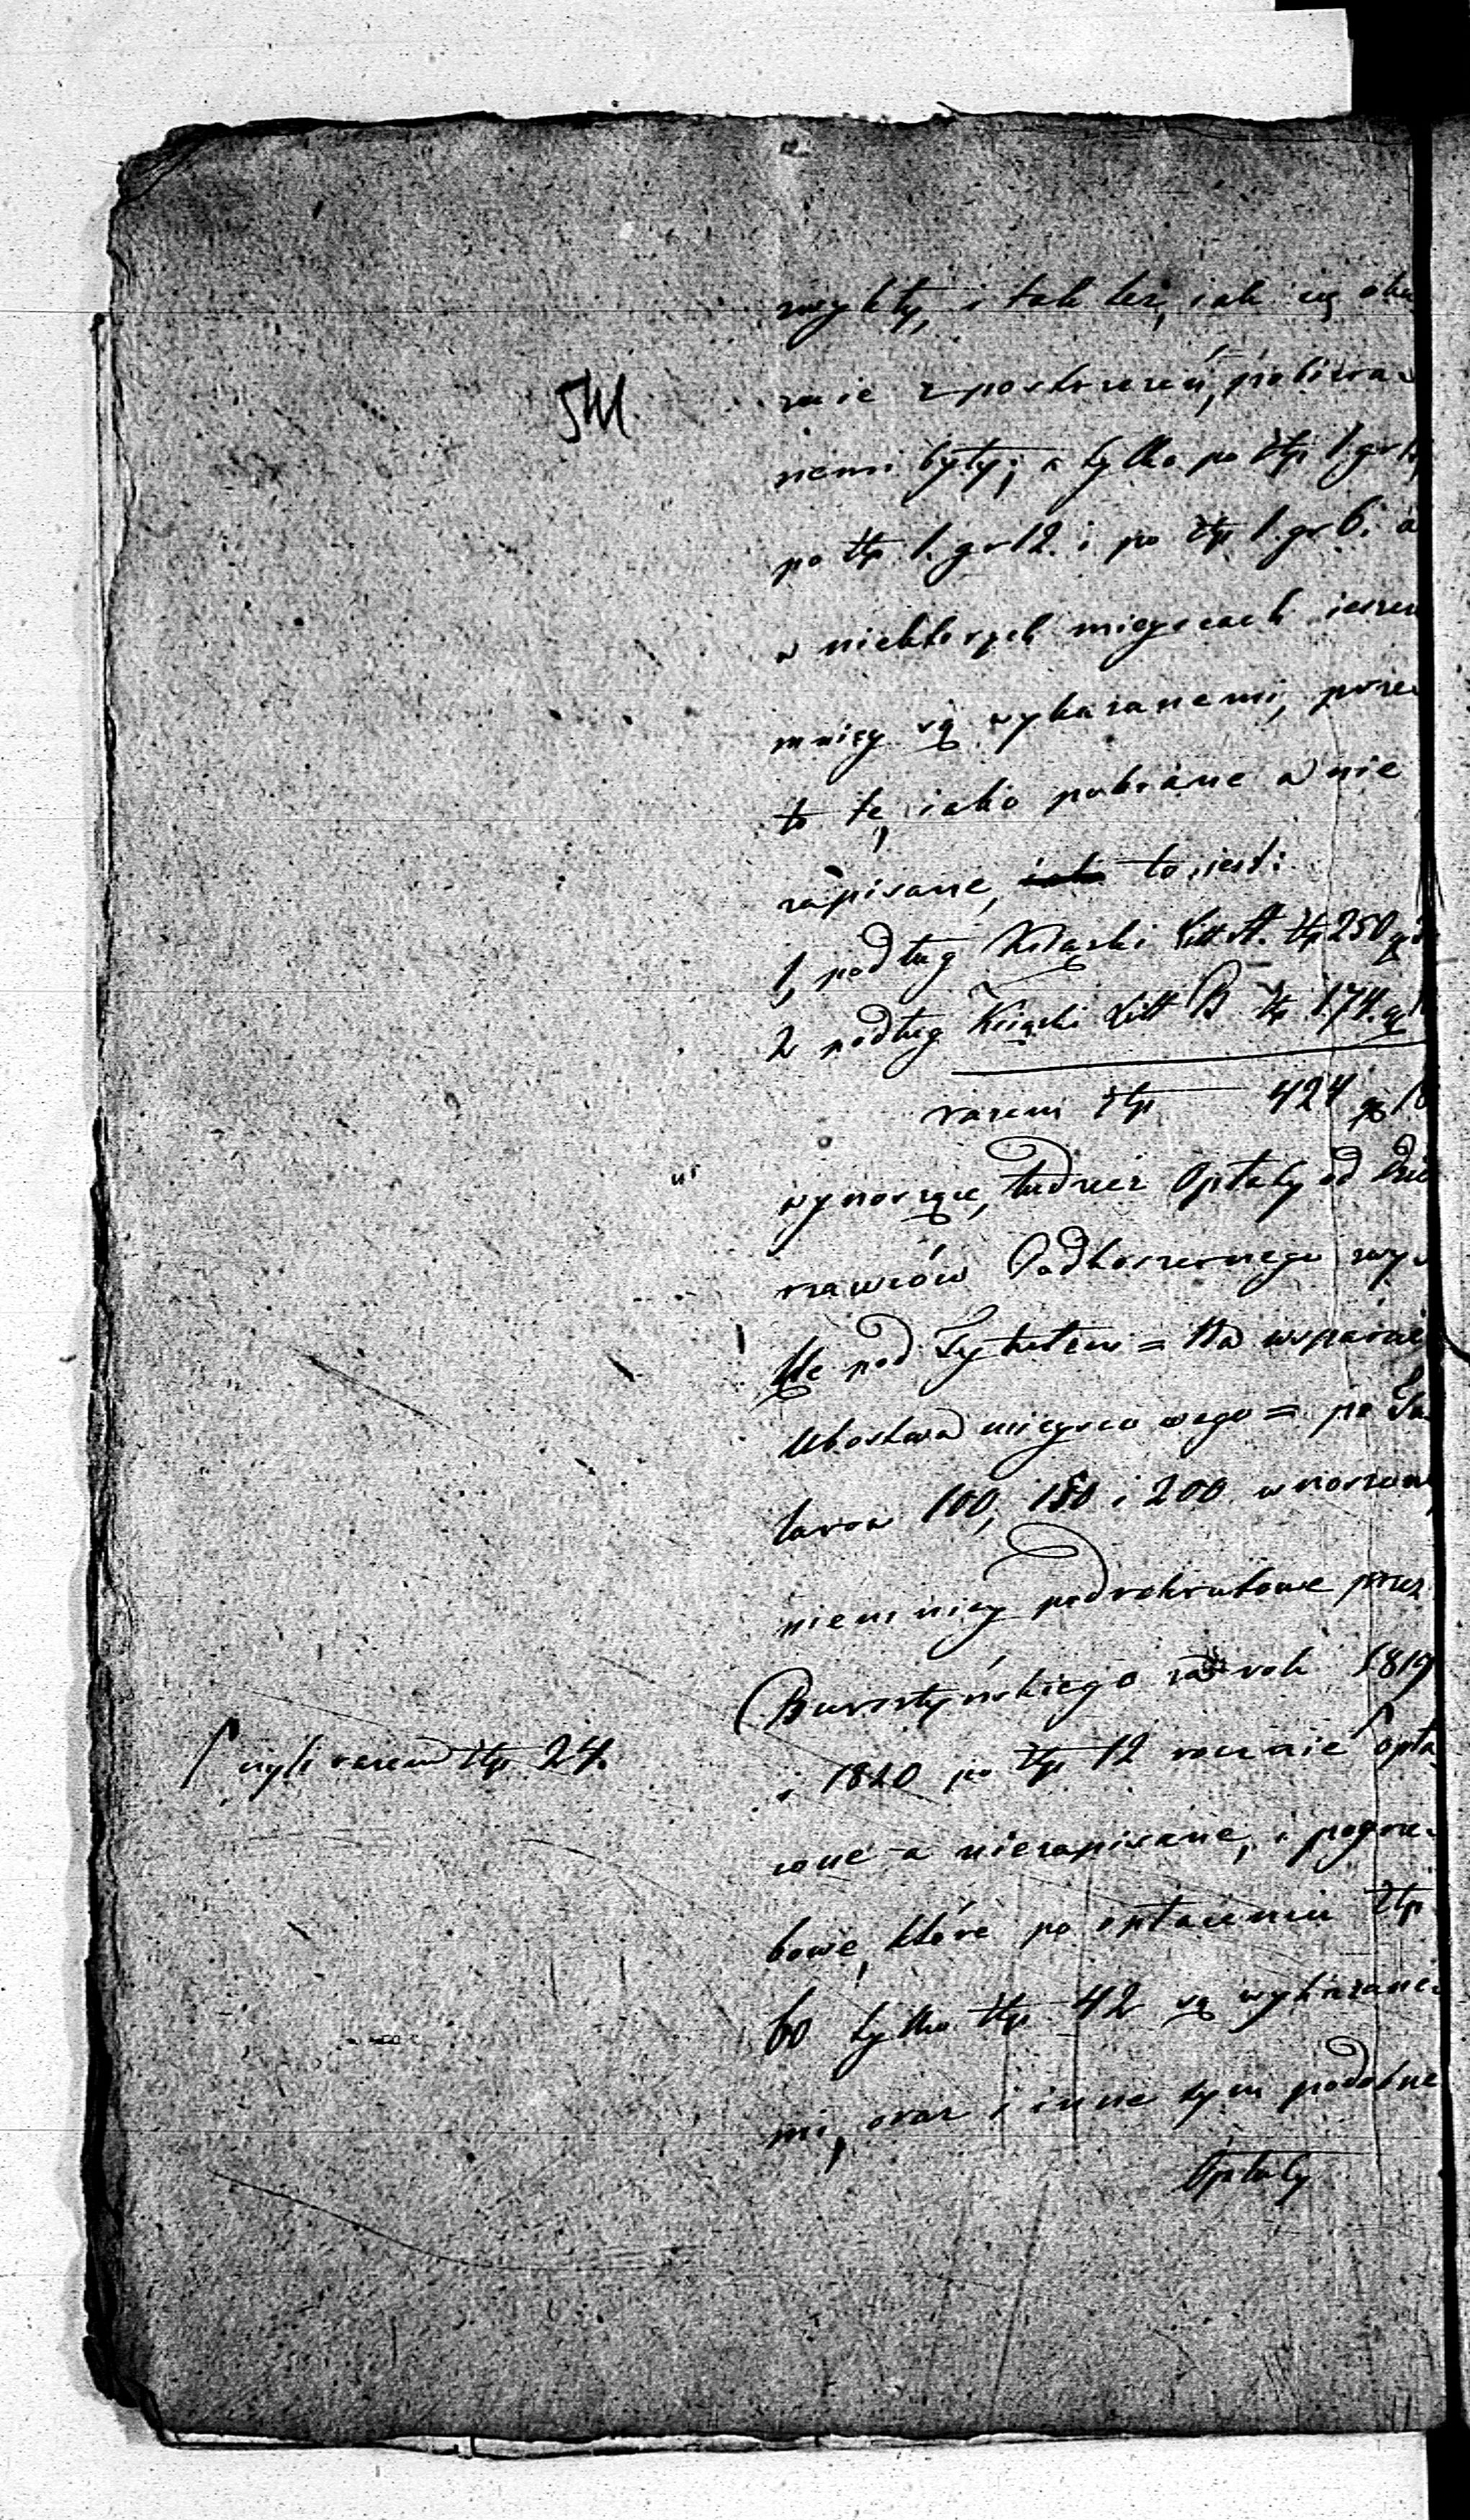 zwykły, i tak też, iak się oka
zuie z postrzeżeń, pobiera-
nemi były; a tylko po złtp 1. gr
po złtp 1. gr 12. i po złtp 1. gr 6. a
w niektórych mieyscach ieszcze
mniey są wykazanemi, prze-
to te, iako pobrane a nie
zapisane, to iest:
1, podług Książki Litt. A. złtp 250 gr
2 podług Książki Litt B złtp 174. gr
razem złtp 424 gr 18
wynoszące, tudzież Opłaty od Dzie
rzawców Podkoszernego zwy-
kłe pod Tytułem = Na wsparcie
Ubóstwa mieyscowego = po Ta-
larow 100, 150 i 200 wnoszone,
niemniey podrekrutowe przez
Bursztyńskiego za rok 1819
i 1820 po złtp 12 rocznie opła
czyli razem złtp 24.
cone a niezapisane, i pogrze-
bowe, które po opłaceniu złtp
60 tylko złtp 42 są wykazane-
mi, oraz i inne tym podobne
Opłaty